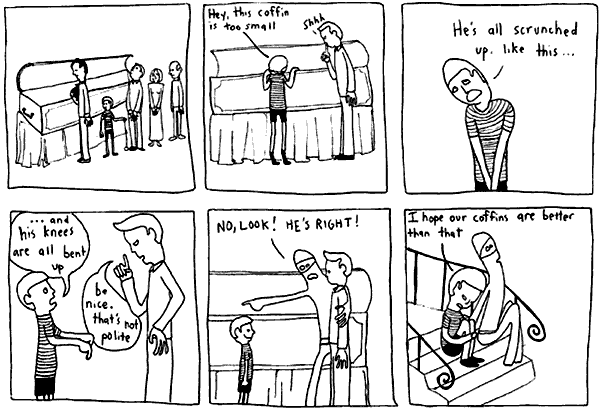 Hey, this coffin
is too small
Shhh
He's all scrunched
up. like this...
... and
his knees
are all bent
up
be
nice.
that's not
polite
NO, LOOK! HE'S RIGHT!
I hope our coffins are better
than that